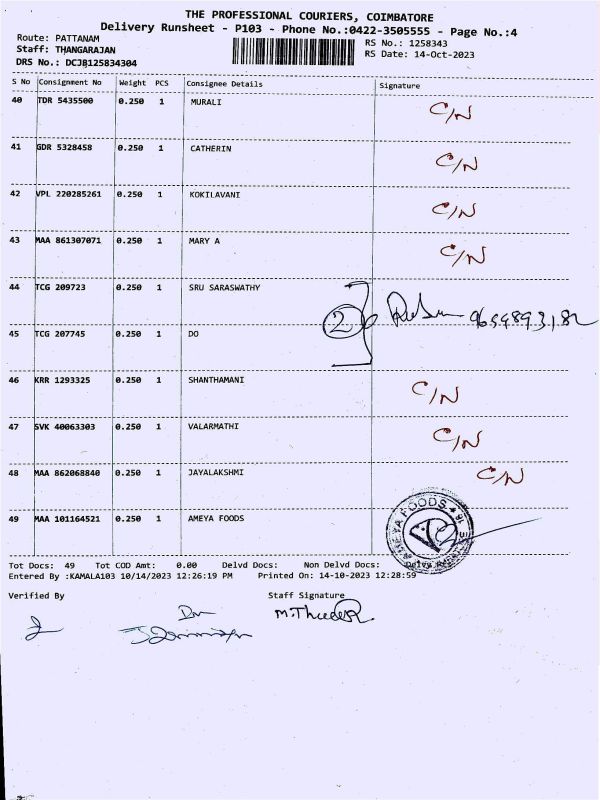 THE PROFESSIONAL COURIERS, COIMBATORE
Delivery Runsheet - P103 - Phone No.:0422-3505555 - Page No.:4
Route: PATTANAM
RS No.: 1258343
Staff: THANGARAJAN
RS Date: 14-Oct-2023
DRS No.: DCJB125834304
S No Consignment No Weight PCS Consignee Details Signature
40 TDR 5435500 0.250 1 MURALI C/N
41 GDR 5328458 0.250 1 CATHERIN C/N
42 VPL 220285261 0.250 1 KOKILAVANI C/N
43 MAA 861307071 0.250 1 MARY A C/N
44 TCG 209723 0.250 1 SRU SARASWATHY
2
45 TCG 207745 0.250 1 DO
46 KRR 1293325 0.250 1 SHANTHAMANI C/N
47 SVK 40063303 0.250 1 VALARMATHI C/N
48 MAA 862068840 0.250 1 JAYALAKSHMI C/N
49 MAA 101164521 0.250 1 AMEYA FOODS
AMEYA FOODS
Tot Docs: 49 Tot COD Amt: 0.00 Delvd Docs: Non Delvd Docs:
Entered By :KAMALA103 10/14/2023 12:26:19 PM Printed On: 14-10-2023 12:28:59
Verified By Staff Signature